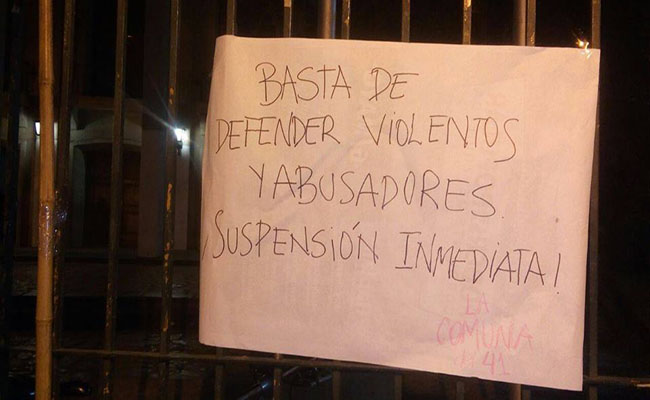 BASTA DE
DEFENDER VIOLENTOS
Y ABUSADORES.
¡SUSPENSIÓN INMEDIATA!
LA
COMUNA
41